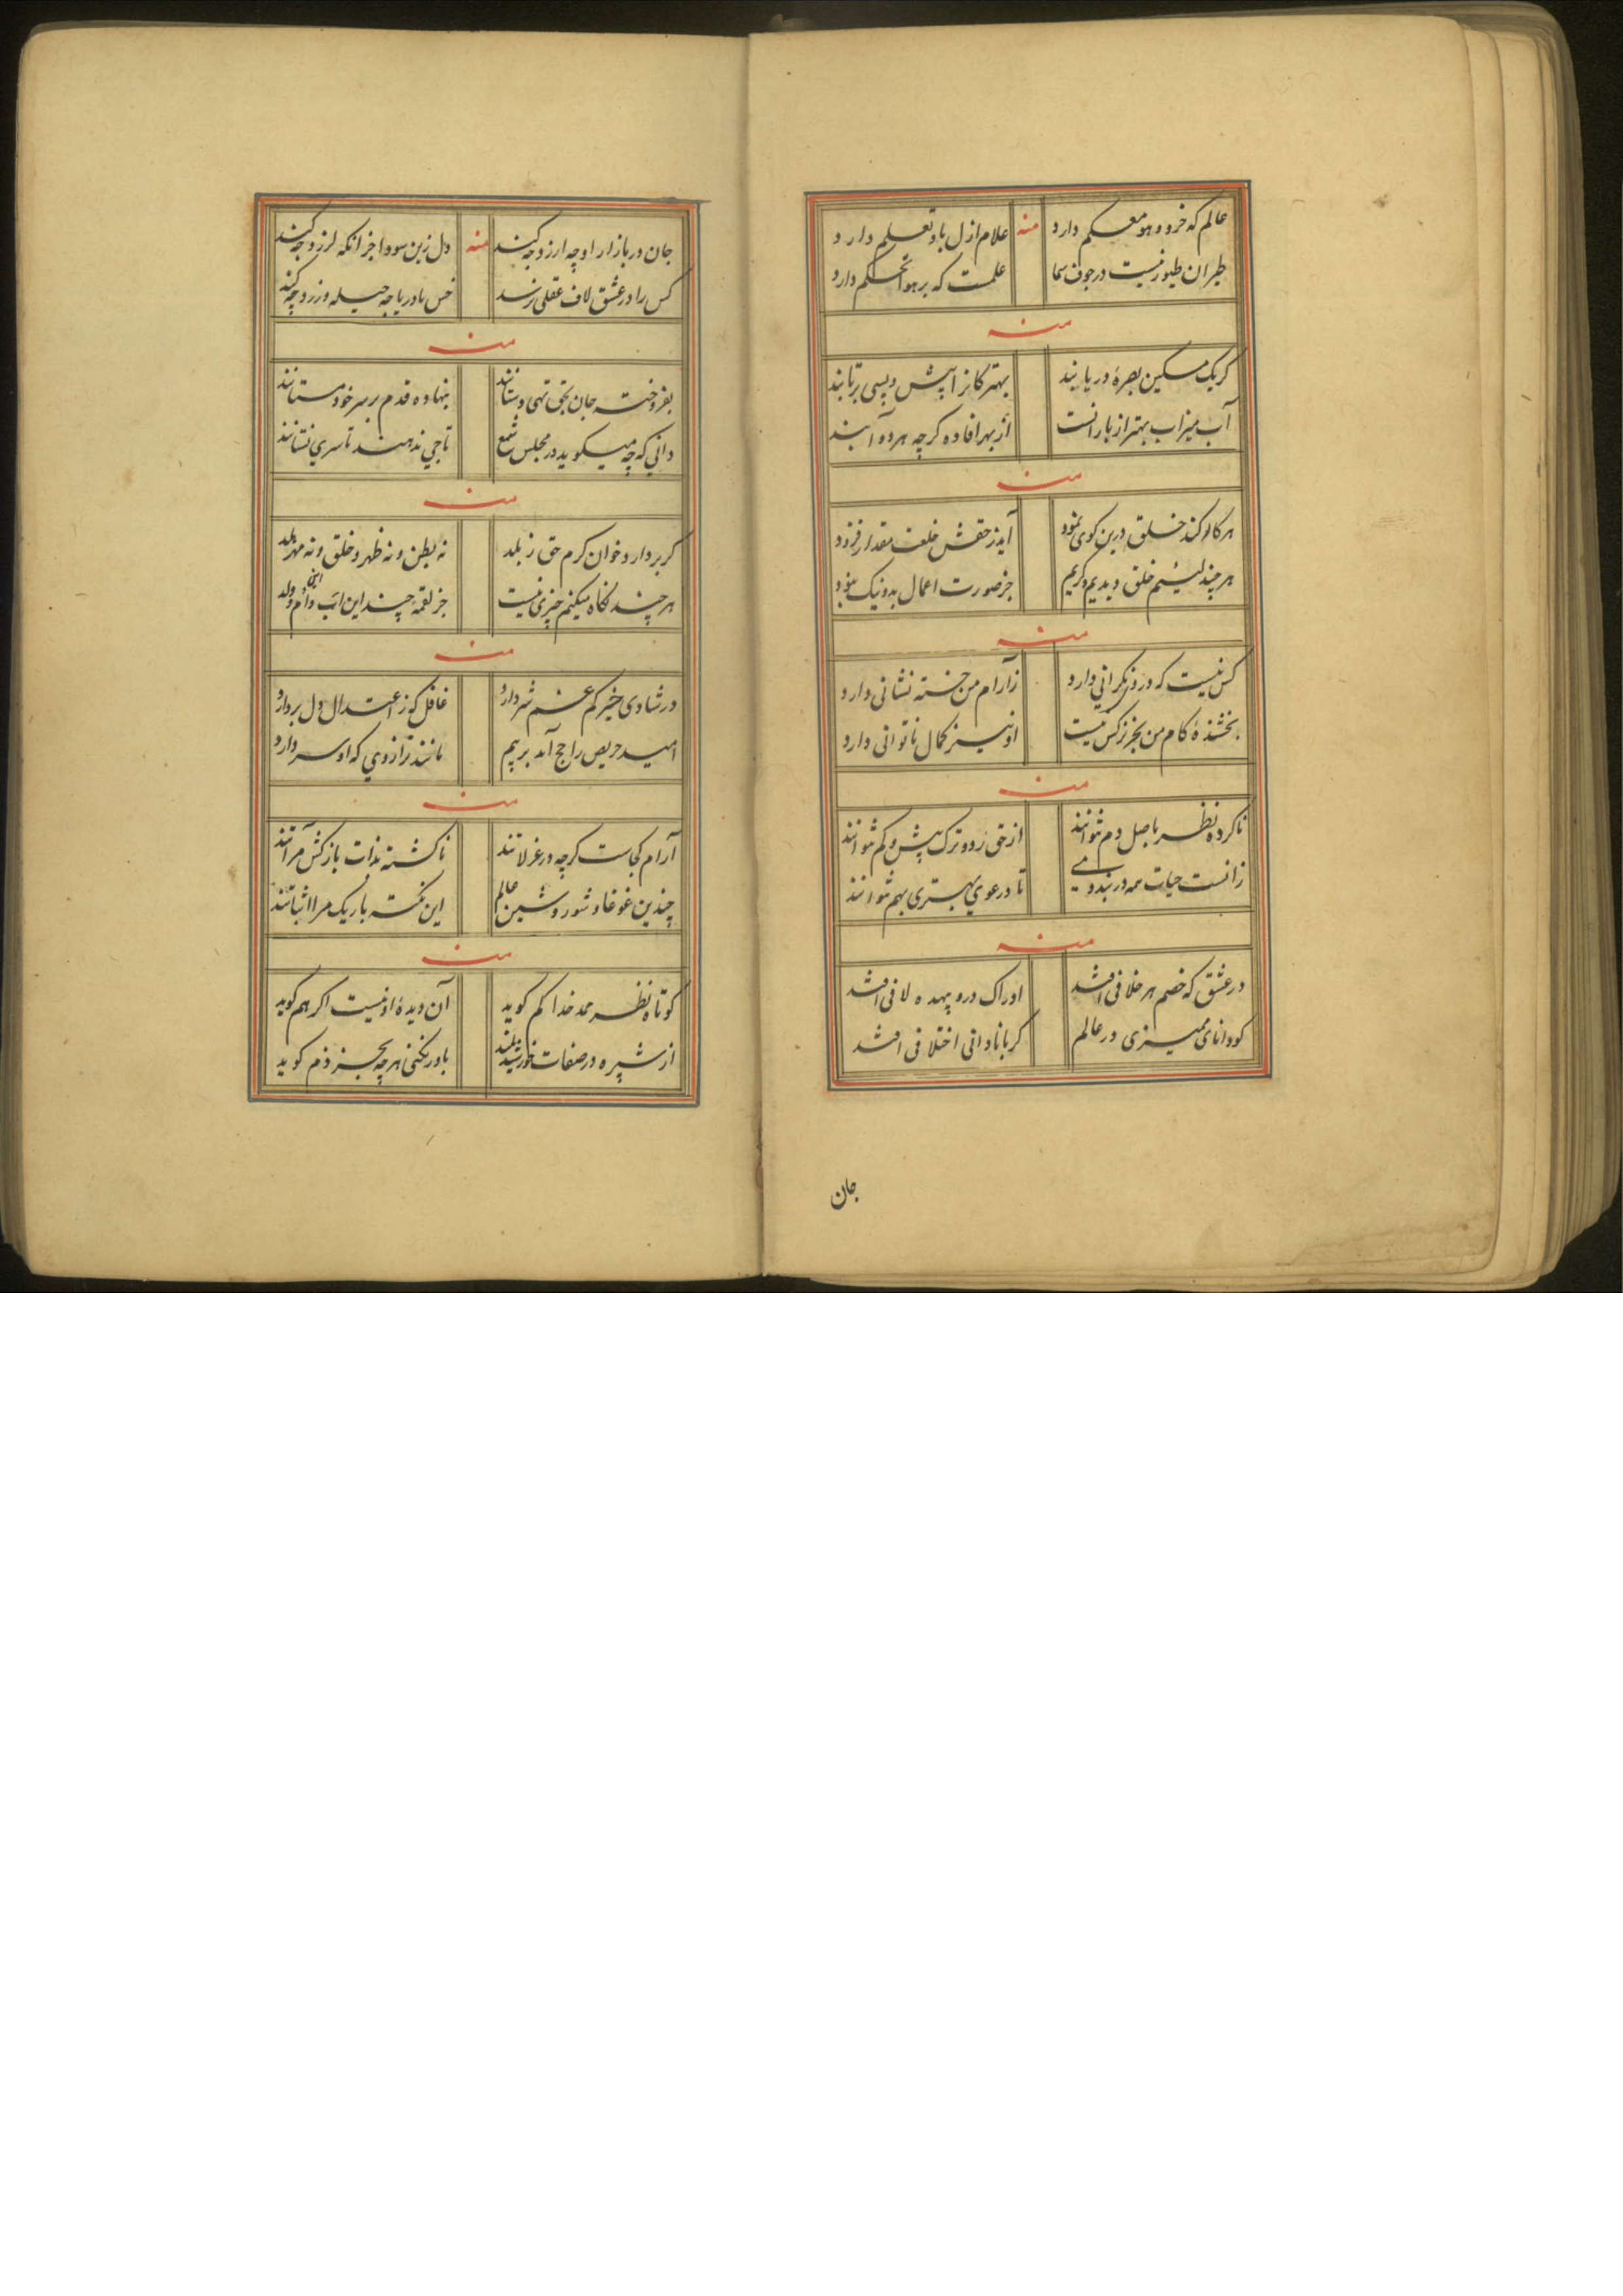 عالم که خرد و هو معسکم دارد منه علام ازل باو تعلم دارد
طیران طیور نیست در جوف سما علمست که بر هوا تحکم دارد
منه
کر یک مسکین بصرۀ دریابند بهتر کانرا پیش و پسی برتابند
آب میزاب بهتر از بارانست از بهر افاده کرچه هر دو آبند
منه
هر کار کند خلق درین کوی نمود آید ز حقش خلعت مقدار فزود
هر چند لئیم خلق و بدیم و کریم جز صورت اعمال بد و نیک نبود
منه
کس نیست که درد نکرانی دارد ز آرام من خسته نشانی دارد
بخشندۀ کام من بجز نرکس نیست او نیز کمال ناتوانی دارد
منه
ناکرده نظر باصل دم نتوانند از حق رد و ترک پیش و کم نتوانند
زانست حیات همه در بند دمی تا دعوی بهتری بهم نتوانند
منه
در عشق که خصم هر خلافی افتد ادراک درو بیهده لافی افتد
کو دانای ممیزی در عالم کر با نادانی اختلافی افتد
جان
جان در بازار او چه ارزد چه کند منه دل زین سودا جز انکه لرزد چه کند
کس را در عشق لاف عقلی نرسد خس با دریا چه حیله ورزد چه کند
منه
بفروخته جان بحق تهی دستانند بنهاده قدم بر سر خود مستانند
دانی که چه میکوید در مجلس شمع تاجی ندهند تا سری نستانند
منه
کر بردارد خوان کرم حق ز بلد نه بطن و نه ظهر و خلق و نه مهر بلد
هر چند نکاه میکنم چیزی نیست جز لقمۀ چند این اب و ام و ابن و ولد
منه
در شادی خیر کم غم شر دارد غافل کز اعتدال دل بردارد
امید حریص راجح آمد بر بیم مانند ترازوی که او سر دارد
منه
آرام کجاست کرچه در غزلاتند ناکشته بذات بازکش مرآتند
چندین غوغا و شور و شین عالم این نکته باریک مرا اثباتند
منه
کوتاه نظر مدد خدا کم کوید آن دیدۀ او نیست اکر هم کوید
از شپره در صفات خورشید بلند باور نکنی هر چه بجز ذم کوید